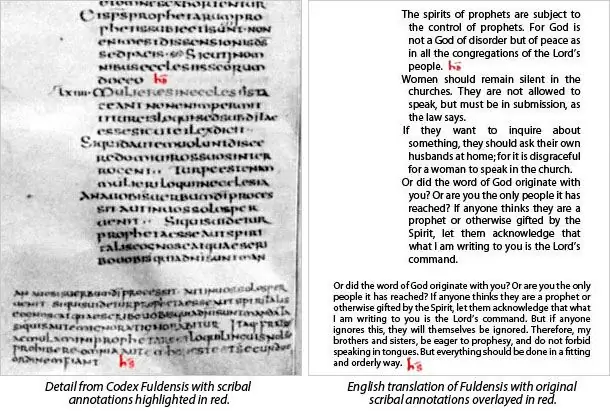 Et spsprophetarumpro
phetissubiectisunt·non
enimestdissensionisds
sedpacis· Sicutinom
nibusecclesiisscorum
doceo hs
mulieresinecclesiista
ceant nonenimpermit
titureisloquisedsubditae
essesicutetlexdicit·
Siquidautemuoluntdisce
redomuirossuosinter
rogent· Turpeestenim
mulieriloquiinecclesia
Anauobisuerbumdiproces
sitautinuossolosper
uenit· Siquisuidetur
prophetaesseautspiri
taliscognoscatquaescri
bouobisquiadnisuntman
An auobisuerbumdiprocessit· autinuossolosper
uenit siquisuideturprophetaesseautspiritalis
cognoscatquaescribouobisquiadnisuntmandata
siquisautemignoratignorabitur Itaqfratres
aemulaminiprophetareetloquilinguisnolite
prohibereomniaautem honesteetsecundum
ordinemfiant hs
Detail from Codex Fuldensis with scribal
annotations highlighted in red.
The spirits of prophets are subject to
the control of prophets. For God is
not a God of disorder but of peace as
in all the congregations of the Lord’s
people. hs
Women should remain silent in the
churches. They are not allowed to
speak, but must be in submission, as
the law says.
If they want to inquire about
something, they should ask their own
husbands at home; for it is disgraceful
for a woman to speak in the church.
Or did the word of God originate with
you? Or are you the only people it has
reached? If anyone thinks they are a
prophet or otherwise gifted by the
Spirit, let them acknowledge that
what I am writing to you is the Lord’s
command.
Or did the word of God originate with you? Or are you the only
people it has reached? If anyone thinks they are a prophet or
otherwise gifted by the Spirit, let them acknowledge that what
I am writing to you is the Lord’s command. But if anyone
ignores this, they will themselves be ignored. Therefore, my
brothers and sisters, be eager to prophesy, and do not forbid
speaking in tongues. But everything should be done in a fitting
and orderly way. hs
English translation of Fuldensis with original
scribal annotations overlayed in red.